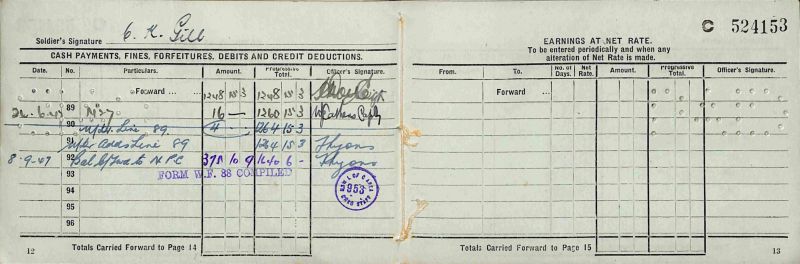 Soldier's Signature C. K. Gill
CASH PAYMENTS, FINES, FORFEITURES, DEBITS AND CREDIT DEDUCTIONS.
Date. No. Particulars. Amount. Progressive Total. Officer's Signature.
Forward 1248 15 3 1248 15 3
89
16 — 1260 15 3
90
Line 89 4 - 1264 15 3
91
adds Line 89 1264 15 3
8-9-47 92 Bal N.P.C 375 10 9 1640 6 -
FORM W.F. 88 COMPILED
93
94
953
95
96
12 Totals Carried Forward to Page 14
C 524153
EARNINGS AT NET RATE.
To be entered periodically and when any
alteration of Net Rate is made.
From. To. No. of Days. Net Rate. Amount. Progressive Total. Officer's Signature.
Forward
Totals Carried Forward to Page 15 13